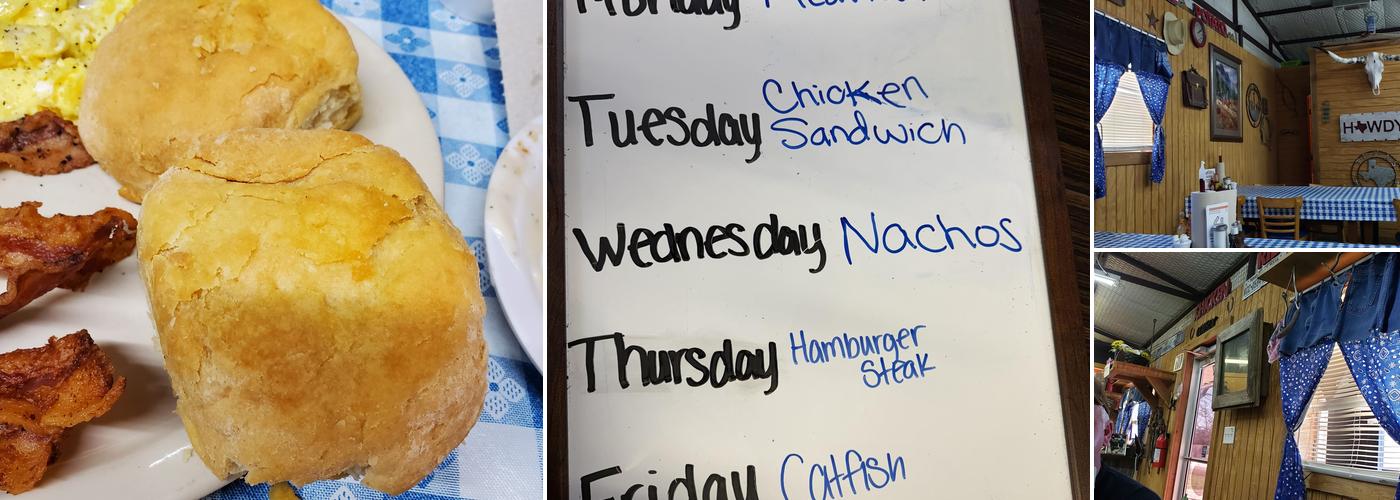 Monday
Tuesday Chicken
Sandwich
Wednesday Nachos
Thursday Hamburger
Steak
Friday Catfish
HOWDY